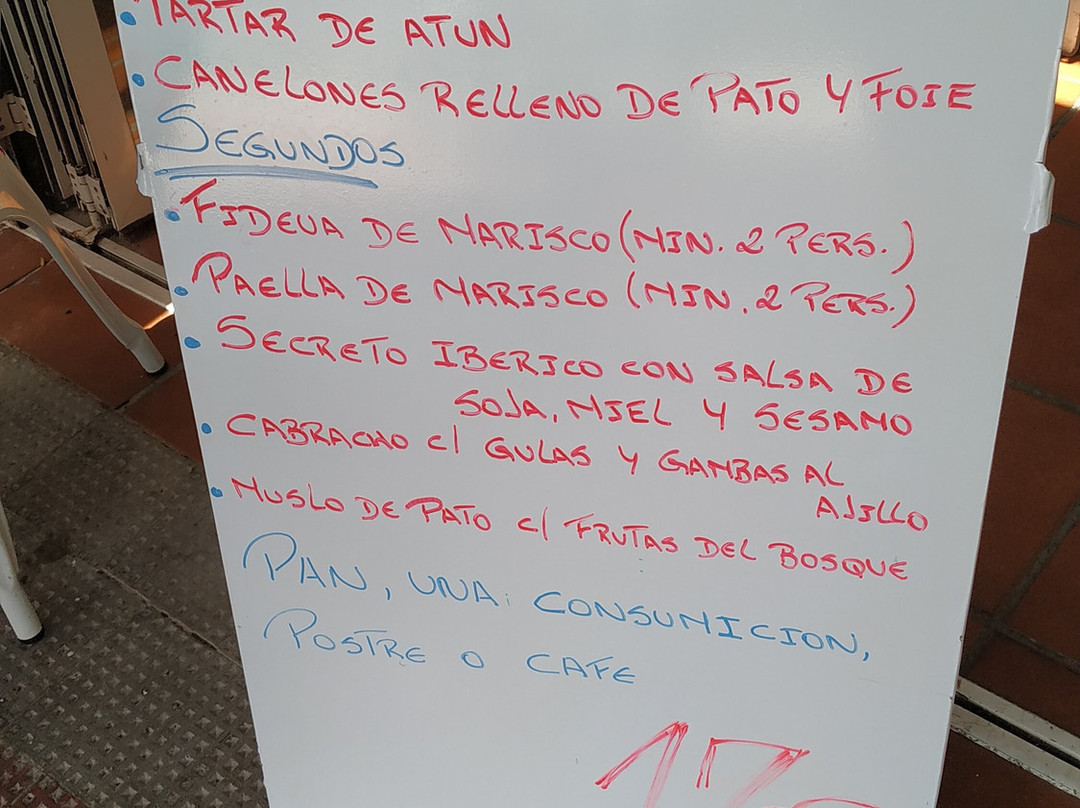 TARTAR DE ATUN
CANELONES RELLENO DE PATO Y FOIE
SEGUNDOS
FIDEUA DE MARISCO (MIN. 2 PERS.)
PAELLA DE MARISCO (MIN. 2 PERS.)
SECRETO IBERICO CON SALSA DE
SOJA, MIEL Y SESAMO
CABRACHO C/ GULAS Y GAMBAS AL
AJILLO
MUSLO DE PATO C/ FRUTAS DEL BOSQUE
PAN, UNA CONSUMICION,
POSTRE O CAFE